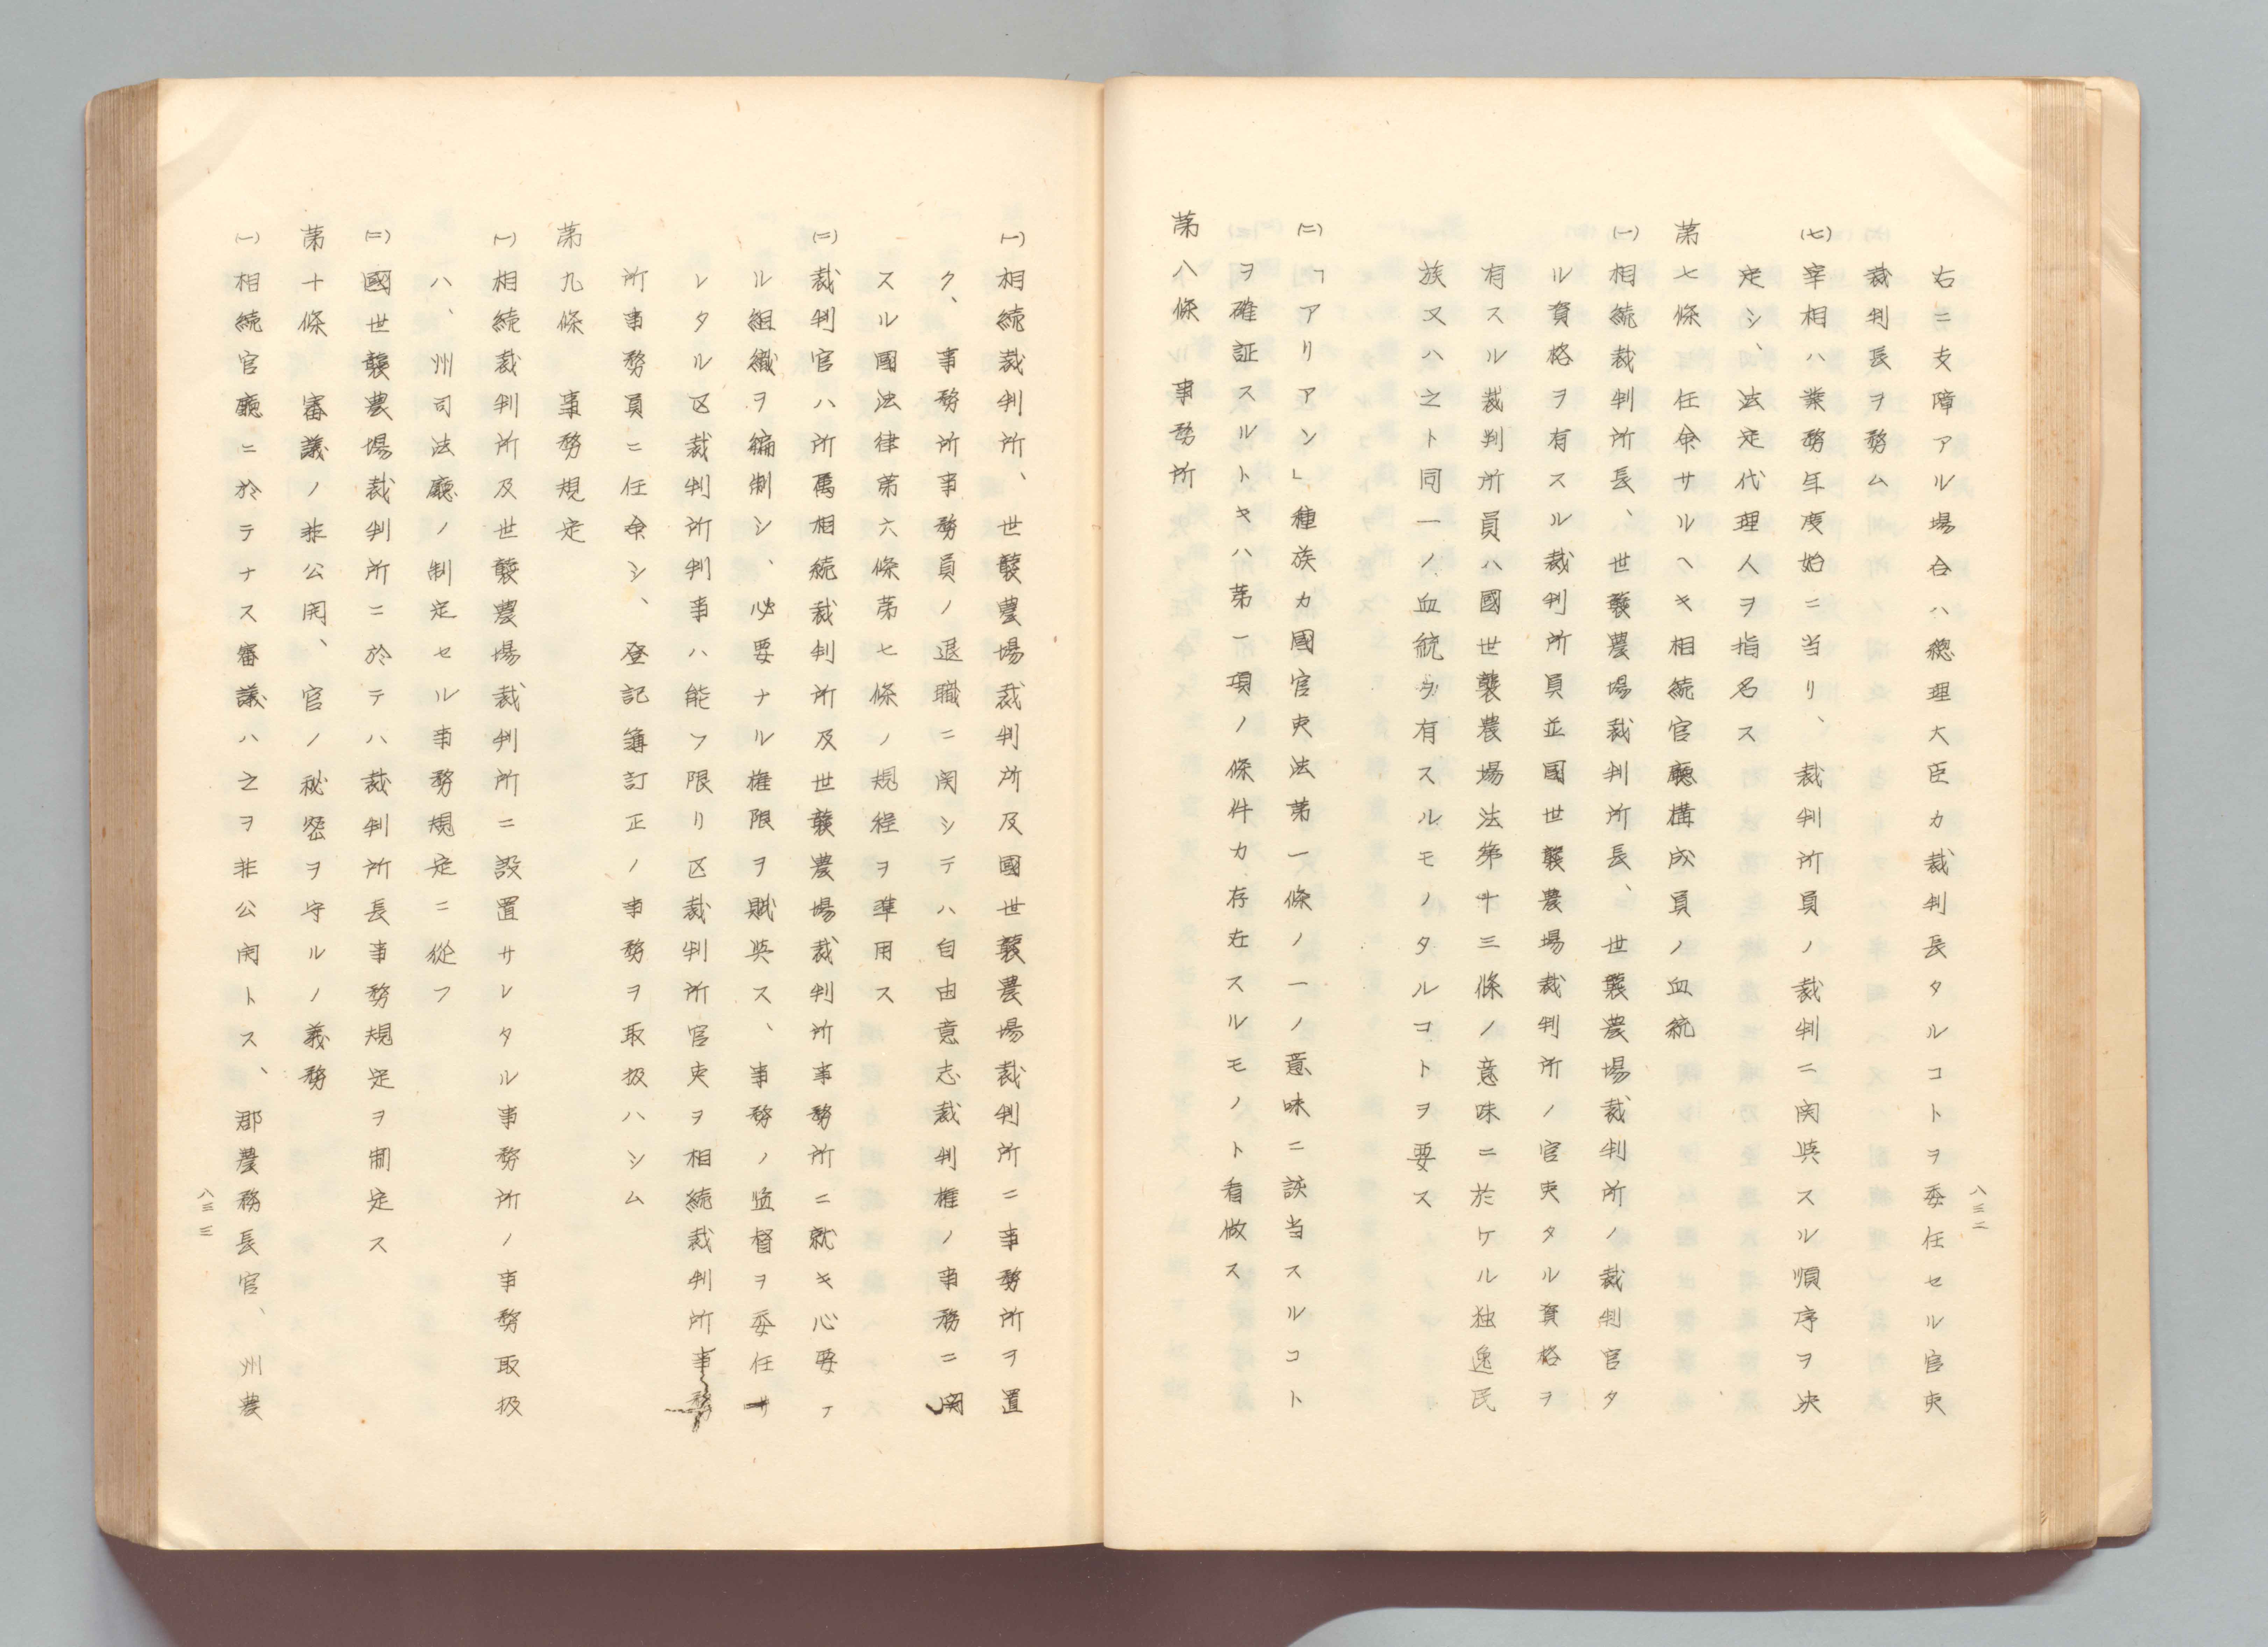 右ニ支障アル場合ハ總理大臣カ裁判長タルコトヲ委任セル官吏
裁判長ヲ務ム
(七)宰相ハ業務年度始ニ当リ、裁判所員ノ裁判ニ関與スル順序ヲ決
定シ、法定代理人ヲ指名ス
第七條 任命サルヘキ相続官廳構成員ノ血統
(一)相続裁判所長、世襲農場裁判所長、世襲農場裁判所ノ裁判官タ
ル資格ヲ有スル裁判所員並國世襲農場裁判所ノ官吏タル資格ヲ
有スル裁判所員ハ國世襲農場法第十三條ノ意味ニ於ケル独逸民
族又ハ之ト同一ノ血統ヲ有スルモノタルコトヲ要ス
(二)「アリアン」種族カ國官吏法第一條ノ一ノ意味ニ該当スルコト
ヲ確証スルトキハ第一項ノ條件カ存在スルモノト看做ス
第八條 事務所
八三二
(一)相続裁判所、世襲農場裁判所及國世襲農場裁判所ニ事務所ヲ置
ク、事務所事務員ノ退職ニ関シテハ自由意志裁判権ノ事務ニ関
スル國法律第六條第七條ノ規程ヲ準用ス
(二)裁判官ハ所属相続裁判所及世襲農場裁判所事務所ニ就キ心要ナ
ル組織ヲ編制シ、必要ナル権限ヲ賦與ス、事務ノ監督ヲ委任サ
レタル区裁判所判事ハ能フ限リ区裁判所官吏ヲ相続裁判所事務
所事務員ニ任命シ、登記簿訂正ノ事務ヲ取扱ハシム
第九條 事務規定
(一)相続裁判所及世襲農場裁判所ニ設置サレタル事務所ノ事務取扱
ハ、州司法廳ノ制定セル事務規定ニ從フ
(二)國世襲農場裁判所ニ於テハ裁判所長事務規定ヲ制定ス
第十條 審議ノ非公開、官ノ秘密ヲ守ルノ義務
(一)相続官廳ニ於テナス審議ハ之ヲ非公開トス、郡農務長官、州農
八三三